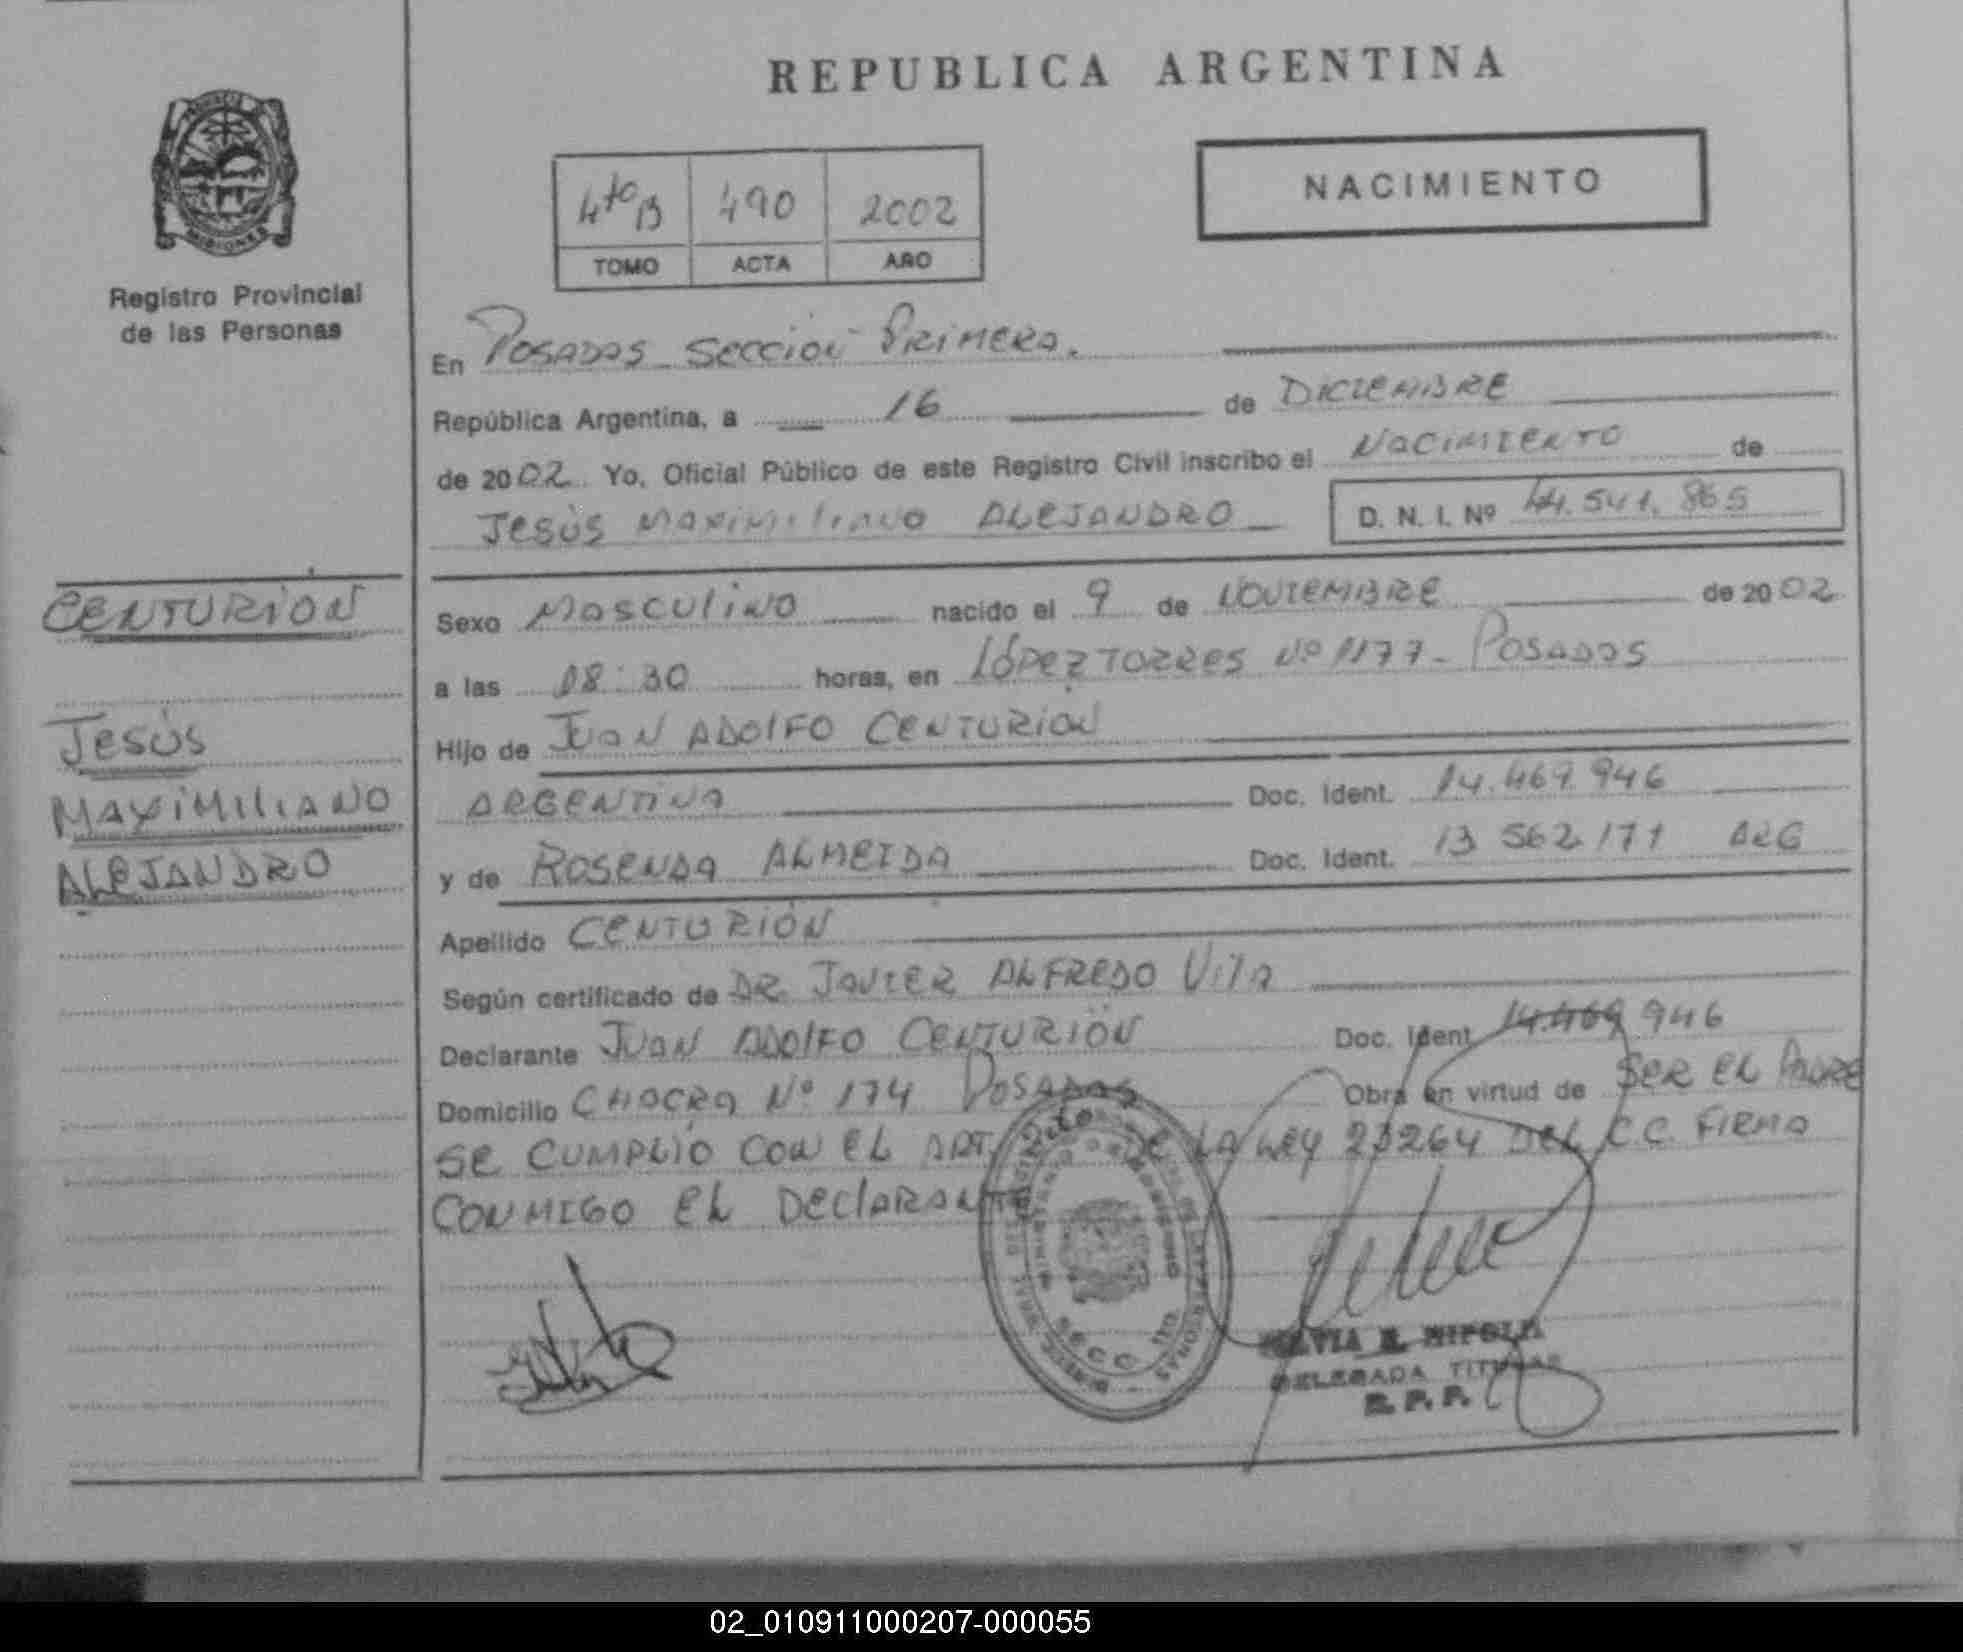 REPUBLICA ARGENTINA
NACIMIENTO
4to B 490 2002
TOMO ACTA AÑO
MISIONES
Registro Provincial
de las Personas
En POSADAS SECCION PRIMERA.
República Argentina, a 16 de DICIEMBRE
de 2002 Yo, Oficial Público de este Registro Civil inscribo el NACIMIENTO de
JESÚS MAXIMILIANO ALEJANDRO D. N. I. Nº 44.541.865
CENTURION
JESÚS
MAXIMILIANO
ALEJANDRO
Sexo MASCULINO nacido el 9 de NOVIEMBRE de 2002
a las 08:30 horas, en LÓPEZ TORRES Nº 1177 - POSADAS
Hijo de JUAN ADOLFO CENTURIÓN
ARGENTINA Doc. Ident. 14.469.946
y de ROSENDA ALMEIDA Doc. Ident. 13 562 171 ARG
Apellido CENTURIÓN
Según certificado de DR. JAVIER ALFREDO VILA
Declarante JUAN ADOLFO CENTURIÓN Doc. Ident 14.469 946
Domicilio CHACRA Nº 174 POSADAS Obra en virtud de SER EL PADRE
SE CUMPLIO CON EL ART. DE LA LEY 23264 DEL C.C. FIRMA
CONMIGO EL DECLARANTE
DELEGADA TITULAR
R. P. P.
02_010911000207-000055